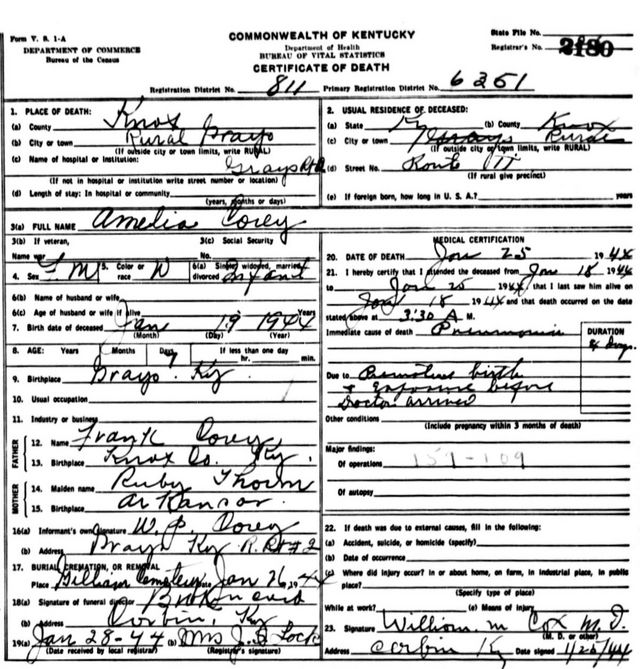 Form V. S. 1-A
DEPARTMENT OF COMMERCE
Bureau of the Census
COMMONWEALTH OF KENTUCKY
Department of Health
BUREAU OF VITAL STATISTICS
CERTIFICATE OF DEATH
State File No.
Registrar's No. 2180
Registration District No. 811 Primary Registration District No. 6351
1. PLACE OF DEATH:
(a) County Knox
(b) City or town Rural Grays
(If outside city or town limits, write RURAL)
(c) Name of hospital or institution:
Grays
(If not in hospital or institution write street number or location)
(d) Length of stay: In hospital or community
(years, months or days)
2. USUAL RESIDENCE OF DECEASED:
(a) State Ky (b) County Knox
(c) City or town Grays Rural
(If outside city or town limits, write RURAL)
(d) Street No. Route
(If rural give precinct)
(e) If foreign born, how long in U. S. A.? years
3(a) FULL NAME Amelia Corey
3(b) If veteran,
Name war
3(c) Social Security
No.
4. Sex 5. Color or race W 6(a) Single, widowed, married, divorced Infant
6(b) Name of husband or wife
6(c) Age of husband or wife if alive Years
7. Birth date of deceased Jan 19 1944
(Month) (Day) (Year)
8. AGE: Years Months Days 7 If less than one day
hr. min.
9. Birthplace Grays Ky
10. Usual occupation
11. Industry or business
FATHER
12. Name Frank Corey
13. Birthplace Knox Co. Ky.
MOTHER
14. Maiden name Ruby
15. Birthplace Arkansas
16(a) Informant's own Signature W. P. Corey
(b) Address Grays Ky R. Rt # 2
17. BURIAL, CREMATION, OR REMOVAL
Place Gilliam Cemetery Date Jan 26, 1944
18(a) Signature of funeral director
(b) Address Corbin, Ky
19(a) Jan 28-44 (b) Mrs J. B Lock
(Date received by local registrar) (Registrar's signature)
MEDICAL CERTIFICATION
20. DATE OF DEATH Jan 25 1944
21. I hereby certify that I attended the deceased from Jan 18 1944
to Jan 25 1944 that I last saw him alive on
Jan 18 1944 and that death occurred on the date
stated above at 3:30 A M.
Immediate cause of death Pneumonia
DURATION
Days
Due to Premature birth
& Exposure before
Doctor arrived
Other conditions
(Include pregnancy within 3 months of death)
Major findings:
Of operations 159-109
Of autopsy
22. If death was due to external causes, fill in the following:
(a) Accident, suicide, or homicide (specify)
(b) Date of occurrence
(c) Where did injury occur? In or about home, on farm, in industrial place, in public
place?
(Specify type of place)
While at work? (e) Means of injury
23. Signature William M Cox M.D.
(M. D. or other)
Address Corbin Ky Date signed 1/26/44